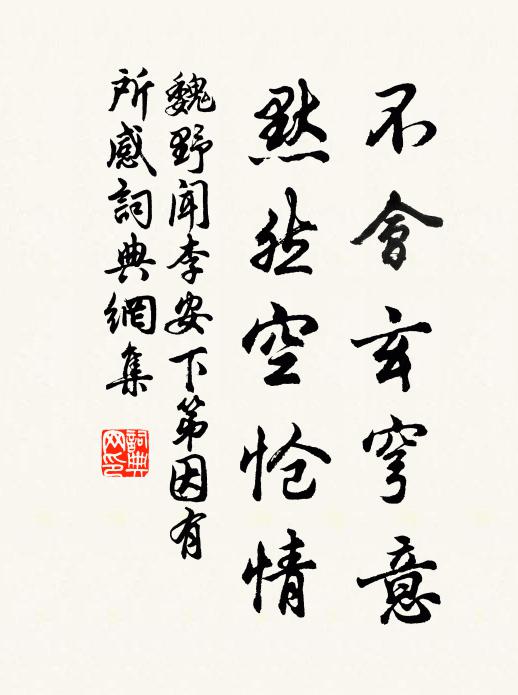 不會玄穹意
默然空愴情
魏野聞李安下第因有
所感詞典網集
詞典
网印